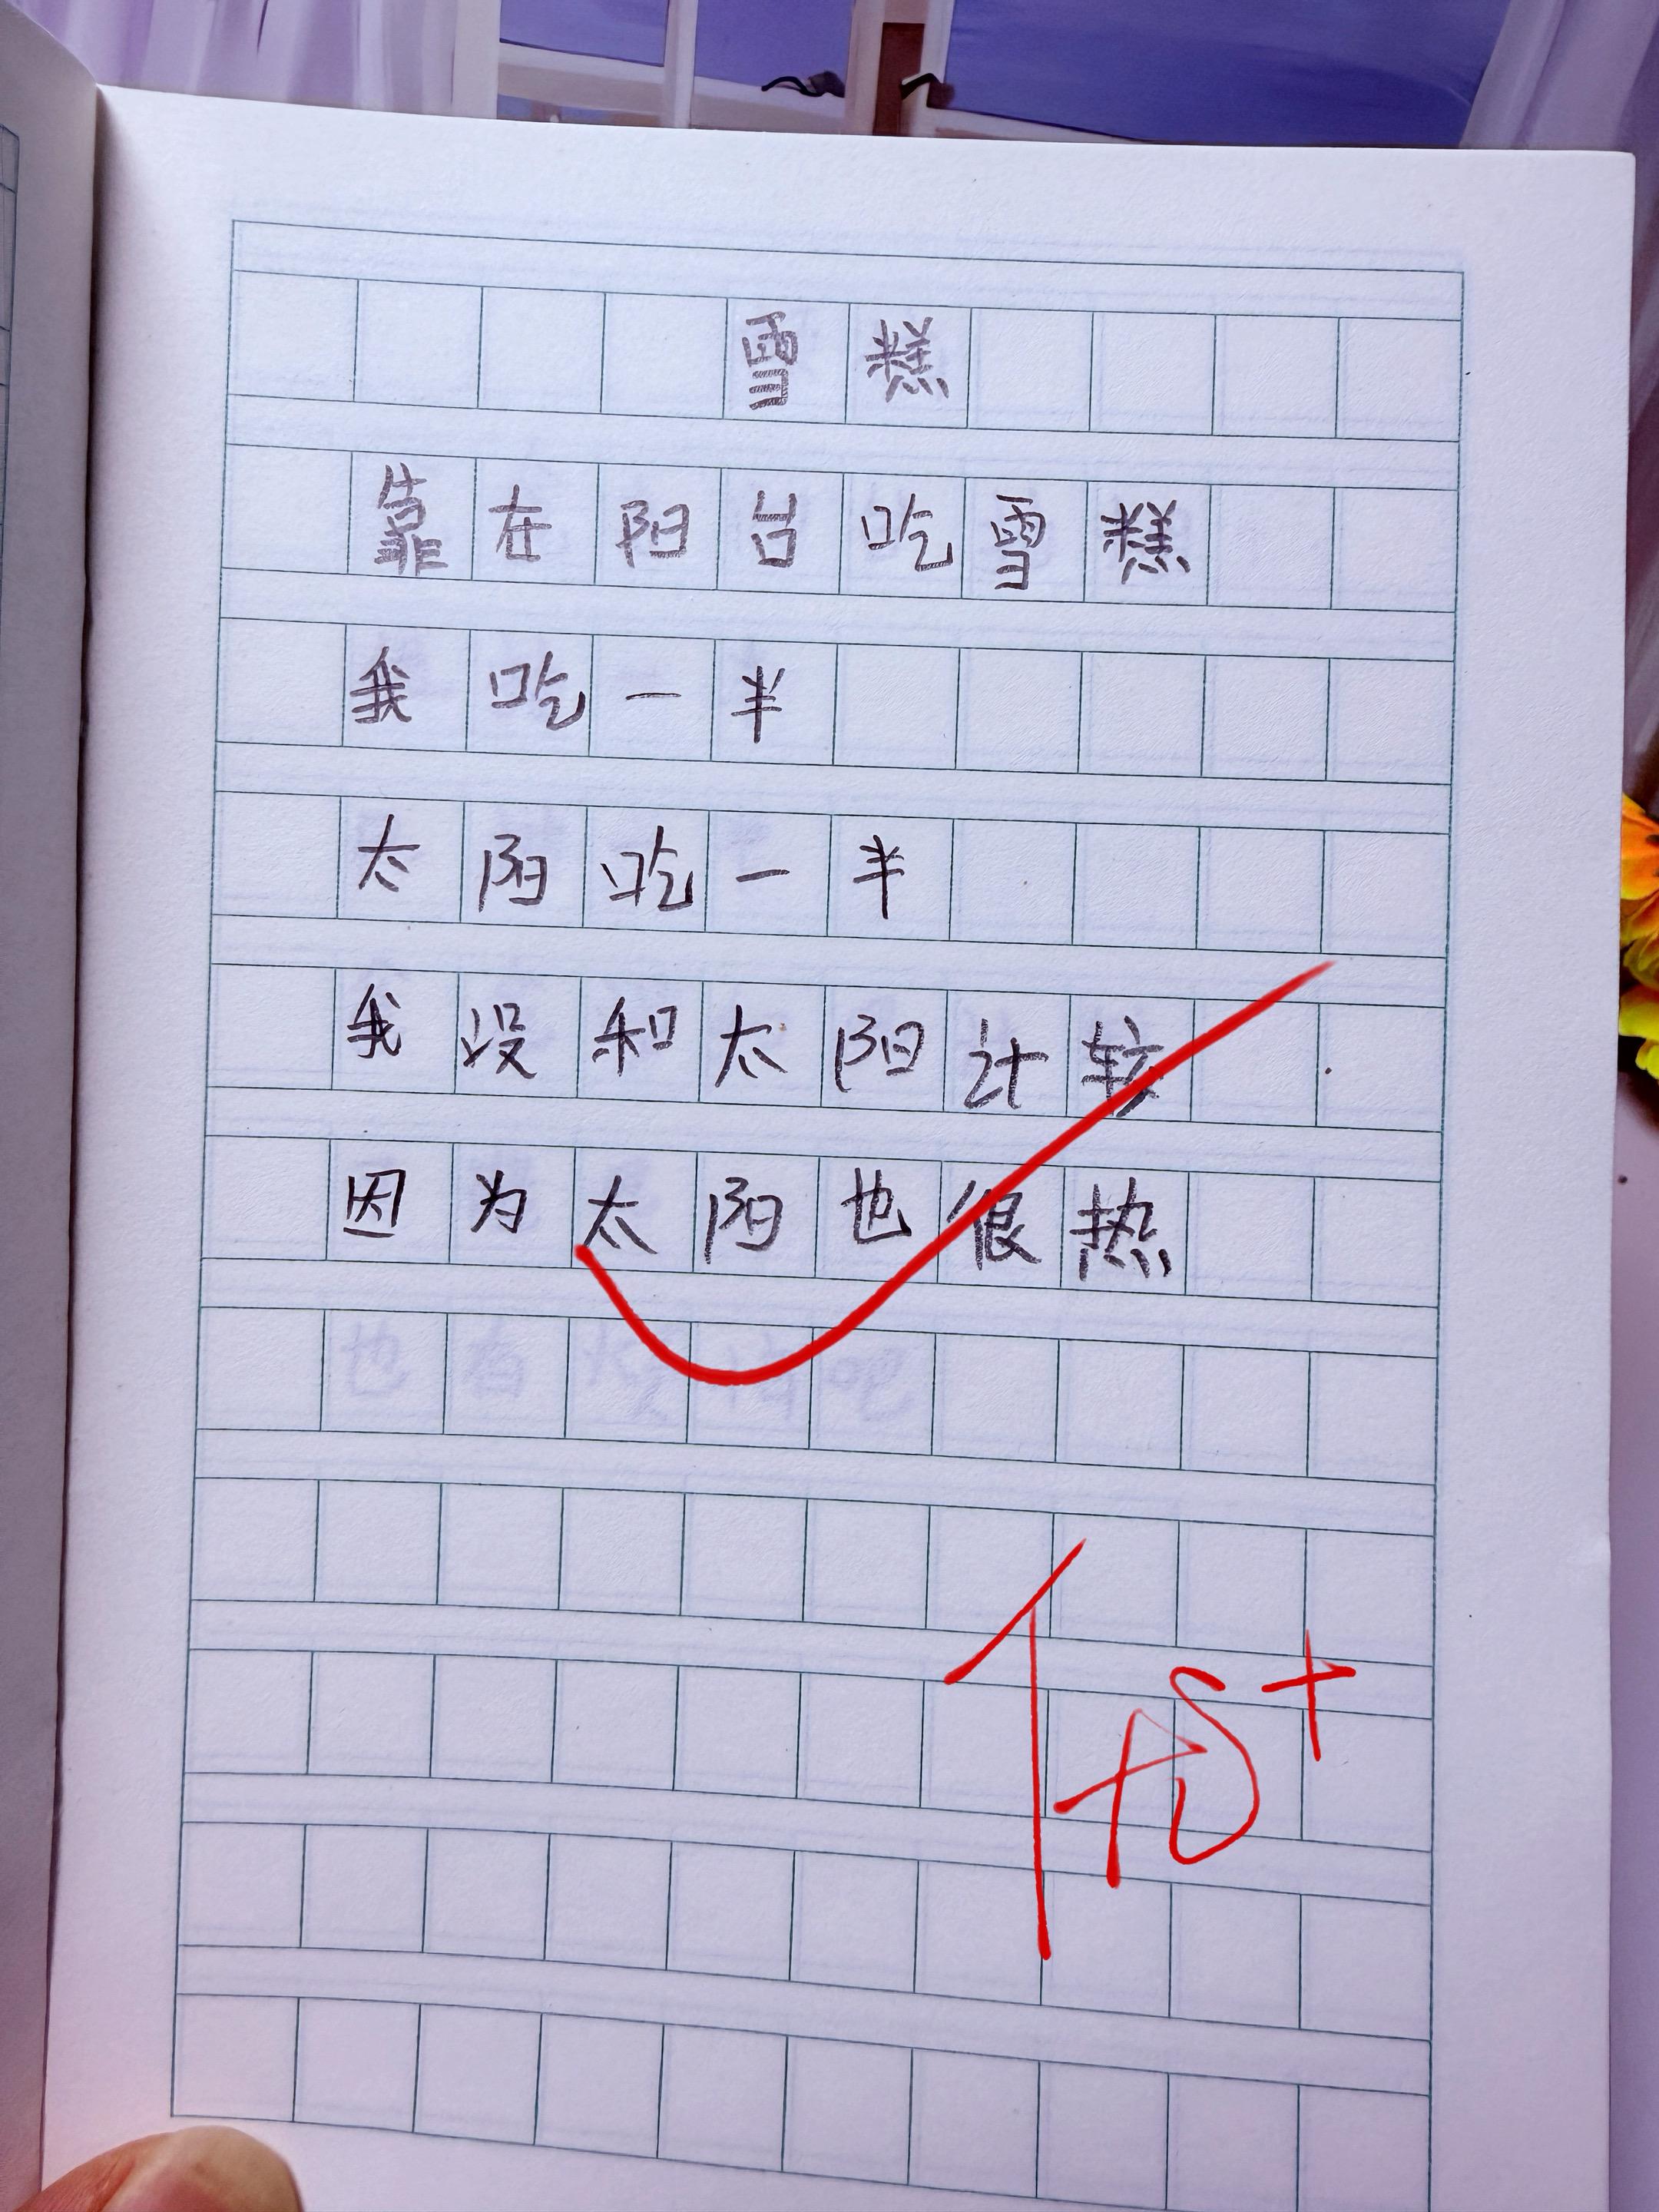 雪糕
靠在阳台吃雪糕
我吃一半
太阳吃一半
我没和太阳计较
因为太阳也很热
优+